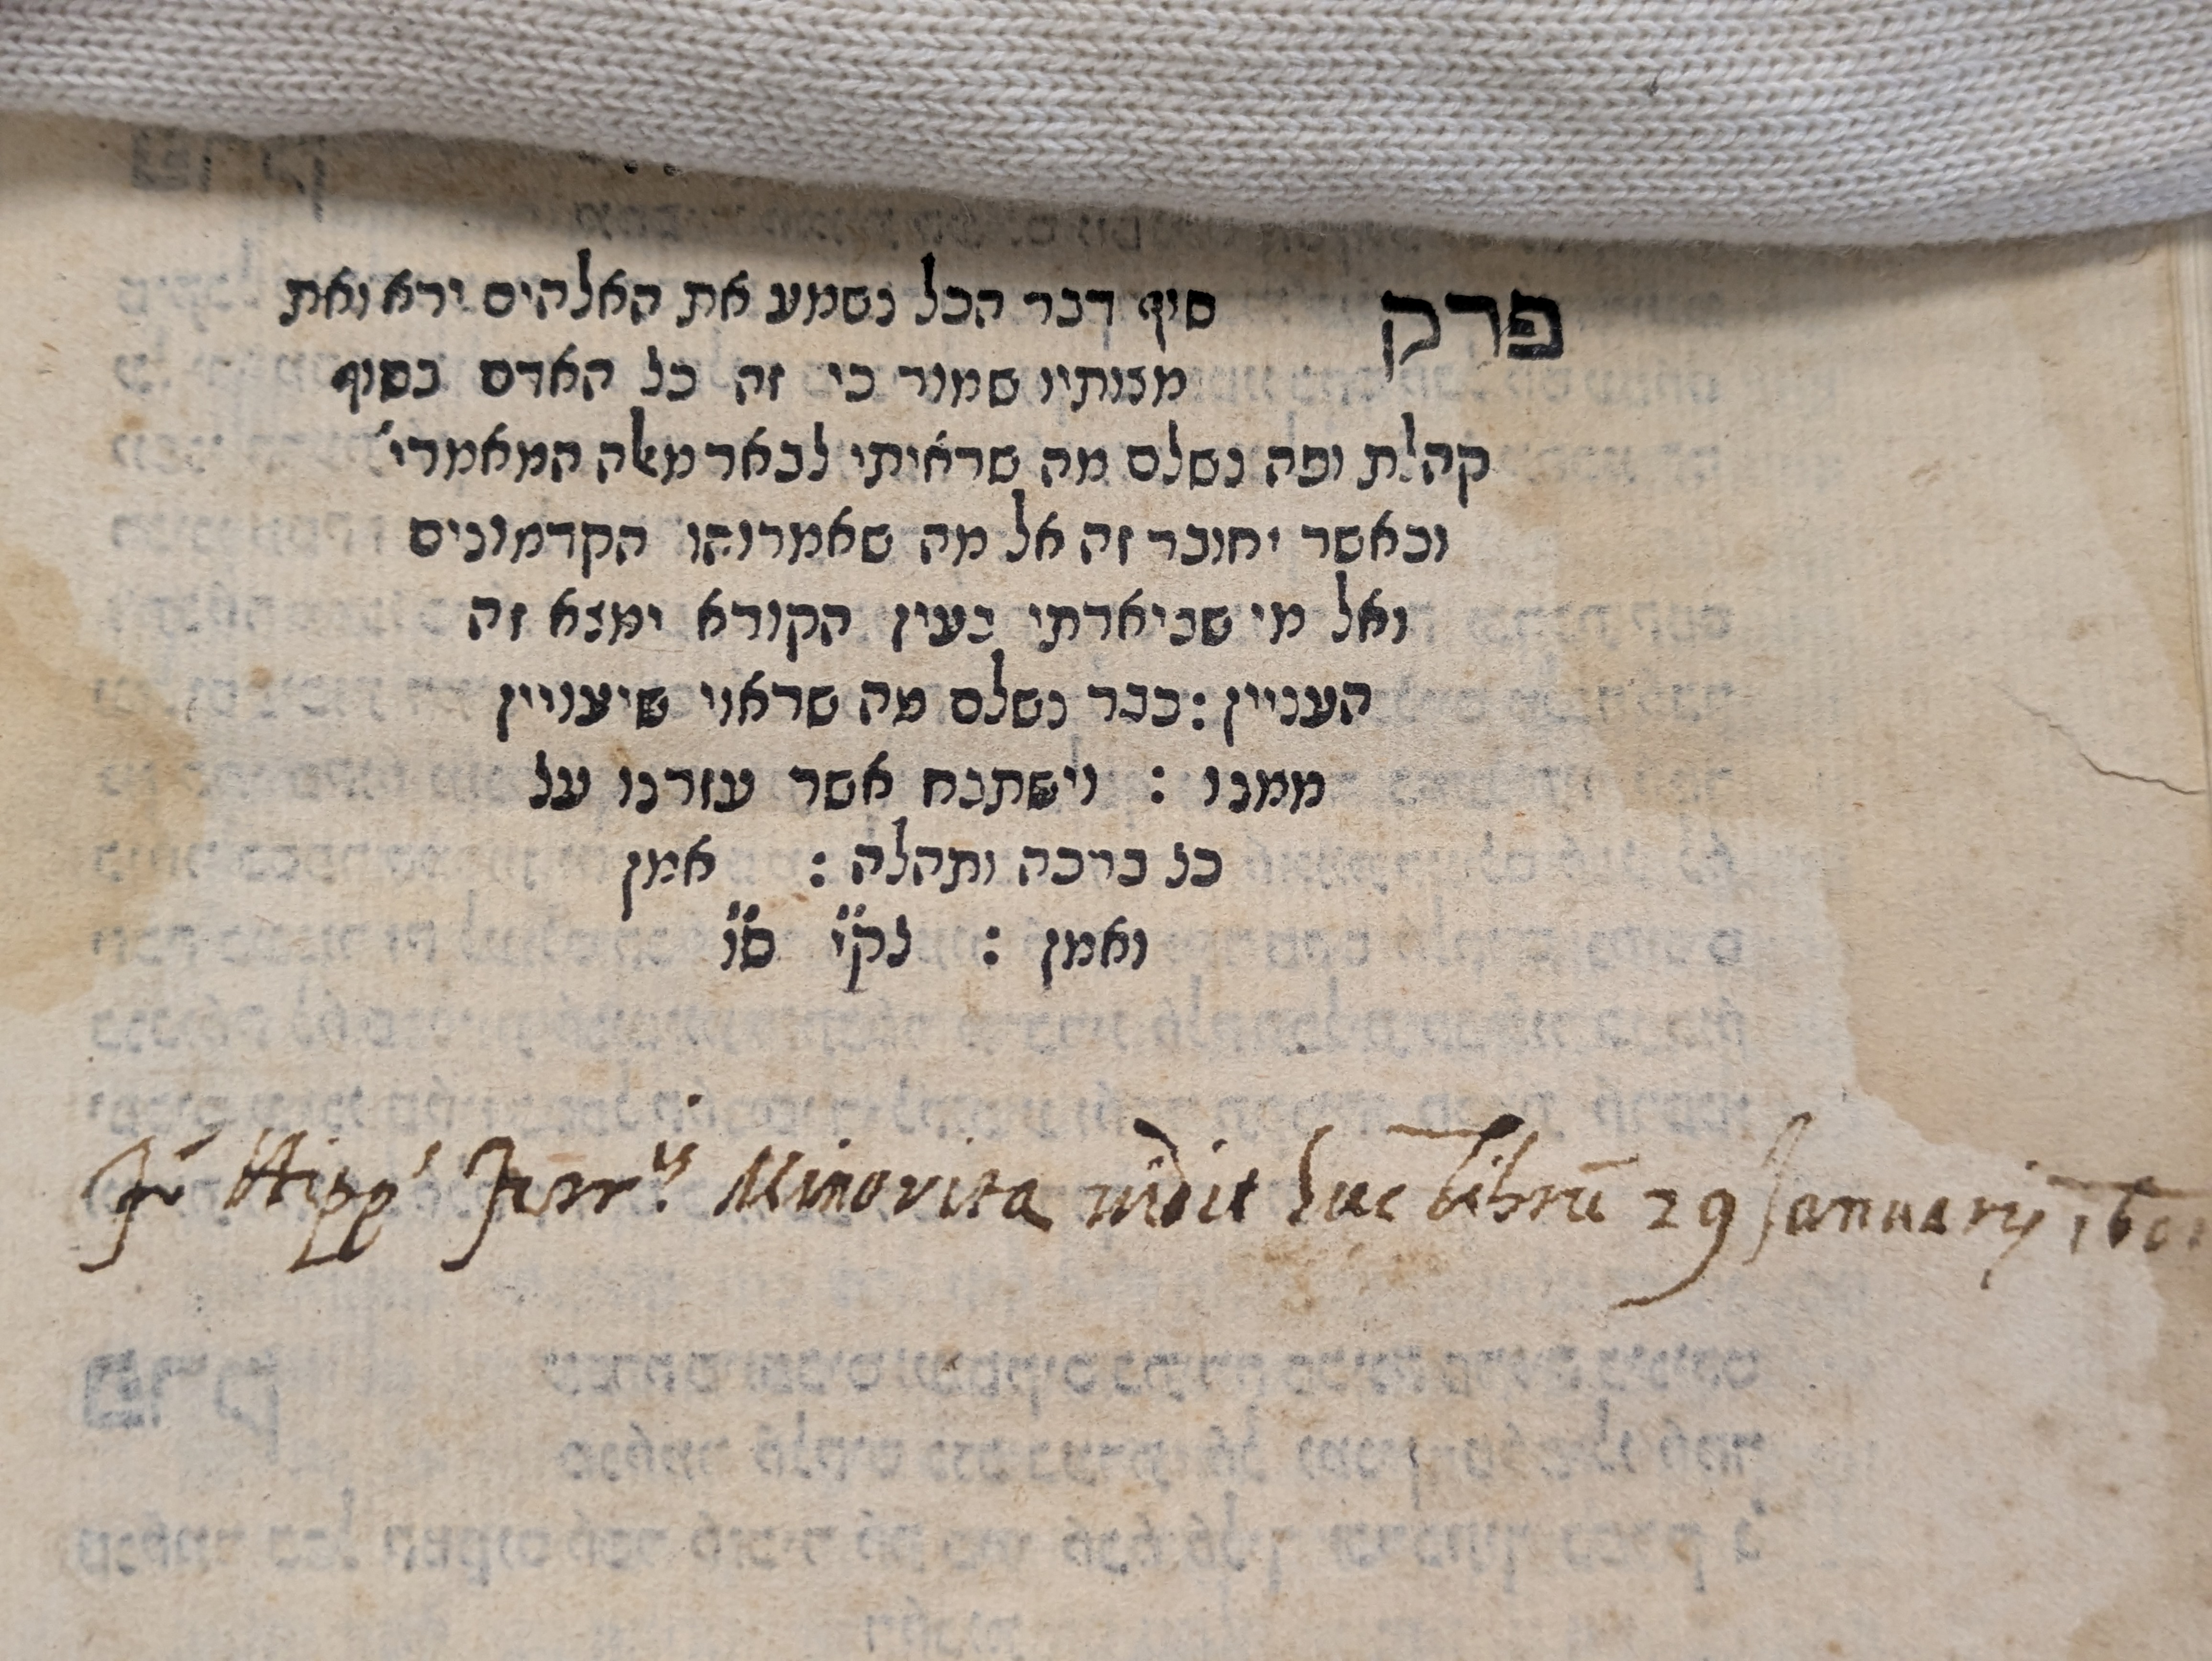 פרק סוף דבר הכל נשמע את האלהים ירא ואת
מצותיו שמור כי זה כל האדם בסוף
קהלת ופה נשלם מה שראיתי לבאר מאלה המאמרי'
וכאשר יחובר זה אל מה שאמרוהו הקדמונים
ואל מי שביארתי בעין הקורא ימצא זה
העניין : כבר נשלם מה שראוי שיעויין
ממנו : וישתבח אשר עזרנו על
כל ברכה ותהלה : אמן
ואמן : לק"י ס"ו
Fr Hipp' Ferr.us Minorita vidit hūc librū 29 Januarij 1601